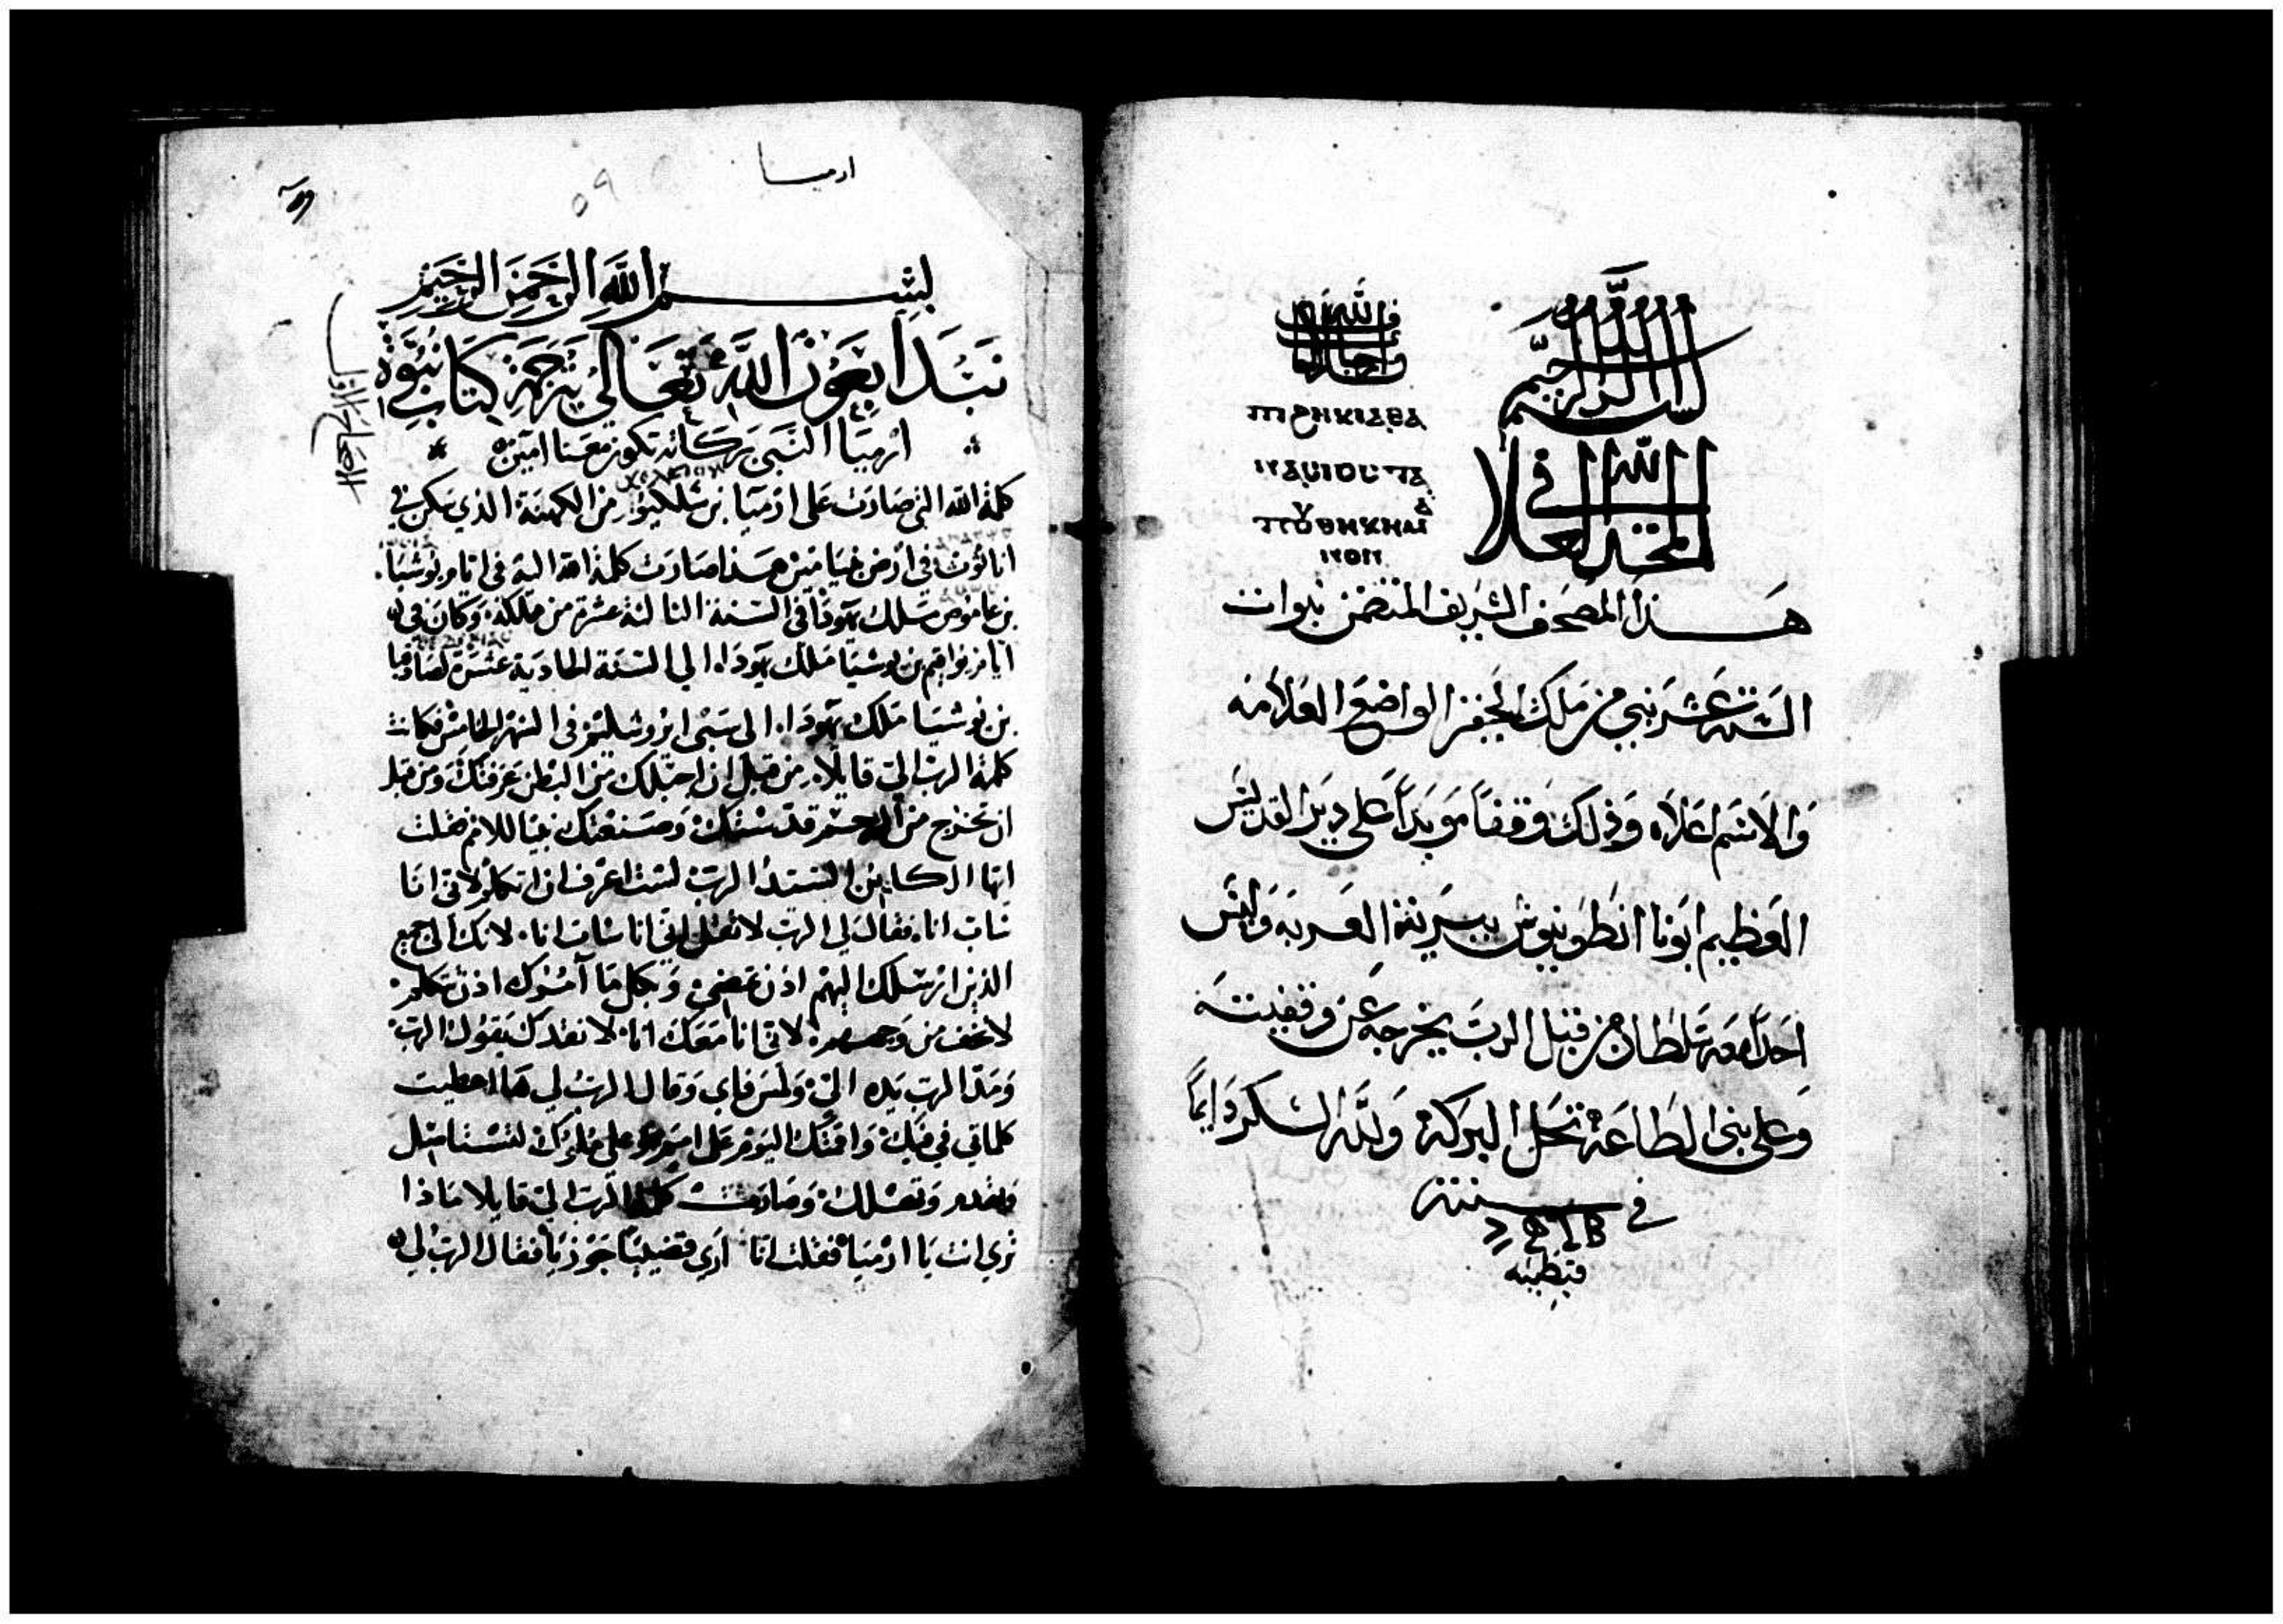 بسم الله الرحيم
المجد لله في العلا
هذا المصحف الشريف المتضمن نبوات
الستة عشر نبي من ملك الحقير الواضع العلامه
والاسم اعلاه وذلك وقفاً موبداً على دير القديس
العظيم ابونا انطونيوش ببرية العربه وليس
احداً معه سلطان من قبل الرب يخرجه عن وقفيته
وعلى بنى الطاعة تحل البركة ولله الشكر دايماً
في سنة
قبطيه
ارميا
٥٩
بسم الله الرحمن الرحيم
نبتدا بعون الله تعالي بترجمة كتاب نبوة
ارميا النبي بركاته تكون معنا امين
كلمة الله التي صارت على ارميا بن شلكيو من الكهنة الذي سكن في
اناثوث في ارض بنيامين هذا صارت كلمة الله اليه في ايام يوشيا
بن عاموص ملك يهوذا في السنة الثالثة عشرة من ملكه وكان في
ايام يواقيم بن يوشيا ملك يهودا الي السنة الحادية عشرة لصادقيا
بن يوشيا ملك يهودا الى سبى ايروشليم في الشهر الخامس فكانت
كلمة الرب الي قايلا من قبل ان اجبلك من البطن عرفتك ومن قبل
ان تخرج من الرحم قدستك وصنعتك نبيا للامم فقلت
ايها الكاين السيد الرب لست اعرف ان اتكلم لاني انا
شاب انا فقال لي الرب لا تقل اني انا شاب انا لانك الى جميع
الذين ارسلك اليهم اذن تمضي وبكل ما آمرك اذن تكلم
لا تخف من وجههم لاني انا معك انا لانقدك يقول الرب
ومد الرب يده الي ولمس فاي وقال الرب لي ها اعطيت
كلماتي في فيك واقمتك اليوم على امم وعلى ملوك لتستاصل
وتهدم وتهلك وصارت كلمة الرب الي قايلا ماذا
تري انت يا ارميا فقلت انا اري قضيبا جوزيا فقال الرب لي